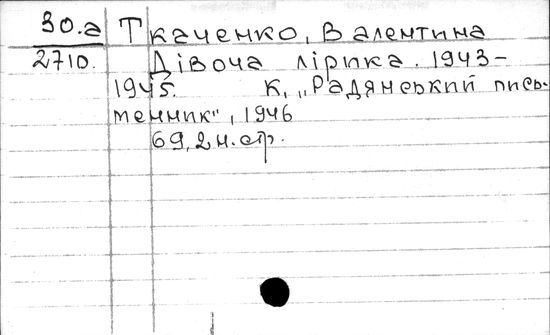 30.а Ткаченко, Валентина
2710. Дівоча лірика. 1943-
1945. К, „Радянський пись-
менник", 1946
69, 2 н. стр.